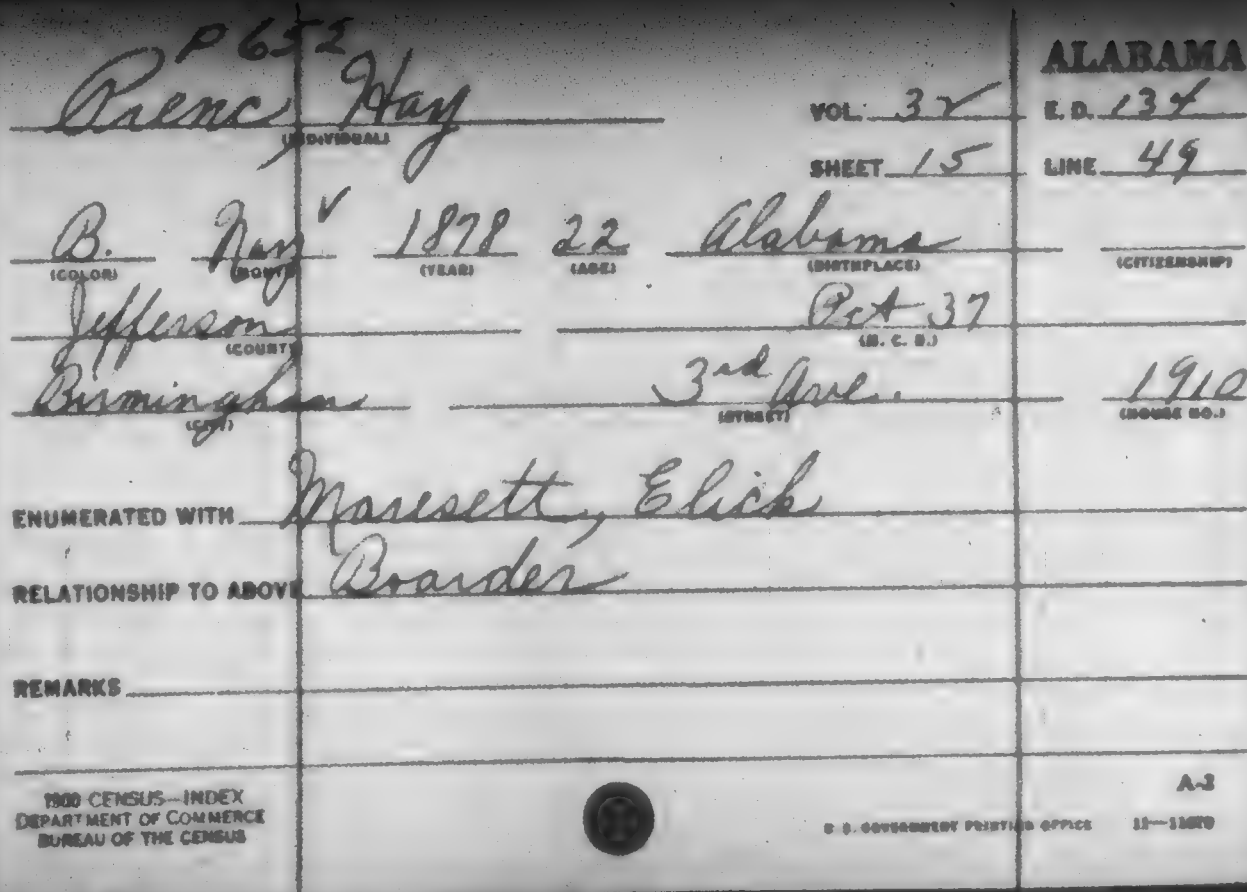 P 652
ALABAMA
Prenc, Hay
(INDIVIDUAL)
VOL. 32 E. D. 134
SHEET 15 LINE 49
B. May ✓ 1878 22 Alabama
(COLOR) (MONTH) (YEAR) (AGE) (BIRTHPLACE) (CITIZENSHIP)
Jefferson Pct 37
(COUNTY) (M. C. D.)
Birmingham 3rd Ave. 1910
(CITY) (STREET) (HOUSE NO.)
ENUMERATED WITH Maresett, Elick
RELATIONSHIP TO ABOVE Boarder
REMARKS
1900 CENSUS—INDEX
DEPARTMENT OF COMMERCE
BUREAU OF THE CENSUS
A-2
U.S. GOVERNMENT PRINTING OFFICE